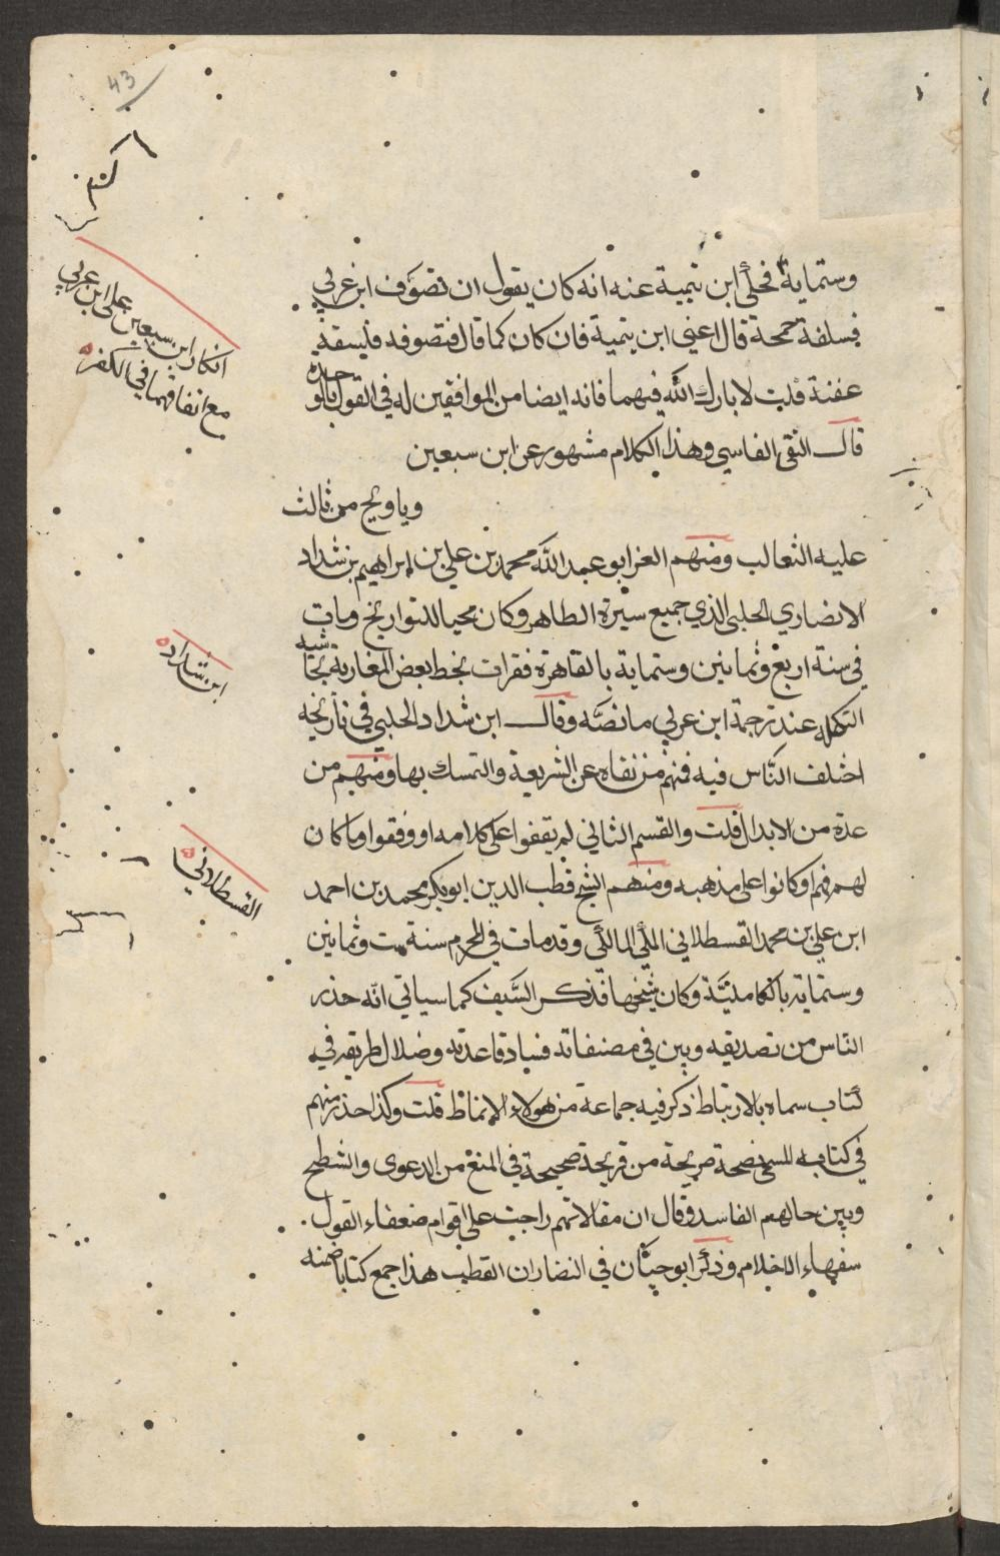 43
وستماية فحكى ابن تيمية عنه انه كان يقول ان تصوف ابن عربي
فلسفة خمجة قال اعني ابن تيمية فان كان كما قال فتصوفه فليسفة
عفنة قلت لا بارك الله فيهما فانه ايضا من الموافقين له في القول بالوحدة
قال التقي الفاسي وهذا الكلام مشهور عن ابن سبعين
وياويح من ثالث
عليه الثعالب ومنهم العز ابو عبد الله محمد بن علي بن ابراهيم بن شداد
الانصاري الحلبي الذي جميع سيرة الطاهر وكان محيا للتواريخ ومات
في سنة اربع وثمانين وستماية بالقاهرة فقرات بخط بعض المغاربة بحاشية
التكمله عند ترجمة ابن عربي ما نصه وقال ابن شداد الحلبي في تاريخه
اختلف الناس فيه فمنهم من نفاه عن الشريعة والتمسك بها ومنهم من
عده من الابدال قلت والقسم الثاني لم يقفوا على كلامه او وقفوا وما كان
لهم فهم او كانوا على مذهبه ومنهم الشيخ قطب الدين ابو بكر محمد بن احمد
ابن علي بن محمد القسطلاني المكي المالكي وقد مات في المحرم سنة ست وثمانين
وستمايه بالكاملية وكان شيخها فذكر السيف كما سياتي انه حذر
الناس من تصديقه وبين في مصنفاته فساد قاعدته وضلال طريقه في
كتاب سماه بالارتباط ذكر فيه جماعة من هولاء الانماظ قلت وكذا حذر منهم
في كتابه المسمى نصحة صريحة من قريحة صحيحة في المنع من الدعوى والشطح
وبين حالهم الفاسد وقال ان مقالاتهم راجت على اقوام ضعفاء القول
سفهاء الاحلام وذكر ابو حيان في النضار ان القطب هذا جمع كتابا ضمنه
انكار ابن سبعين على ابن عربي
مع اتفاقهما في الكفر
ابن شداد
القسطلاني